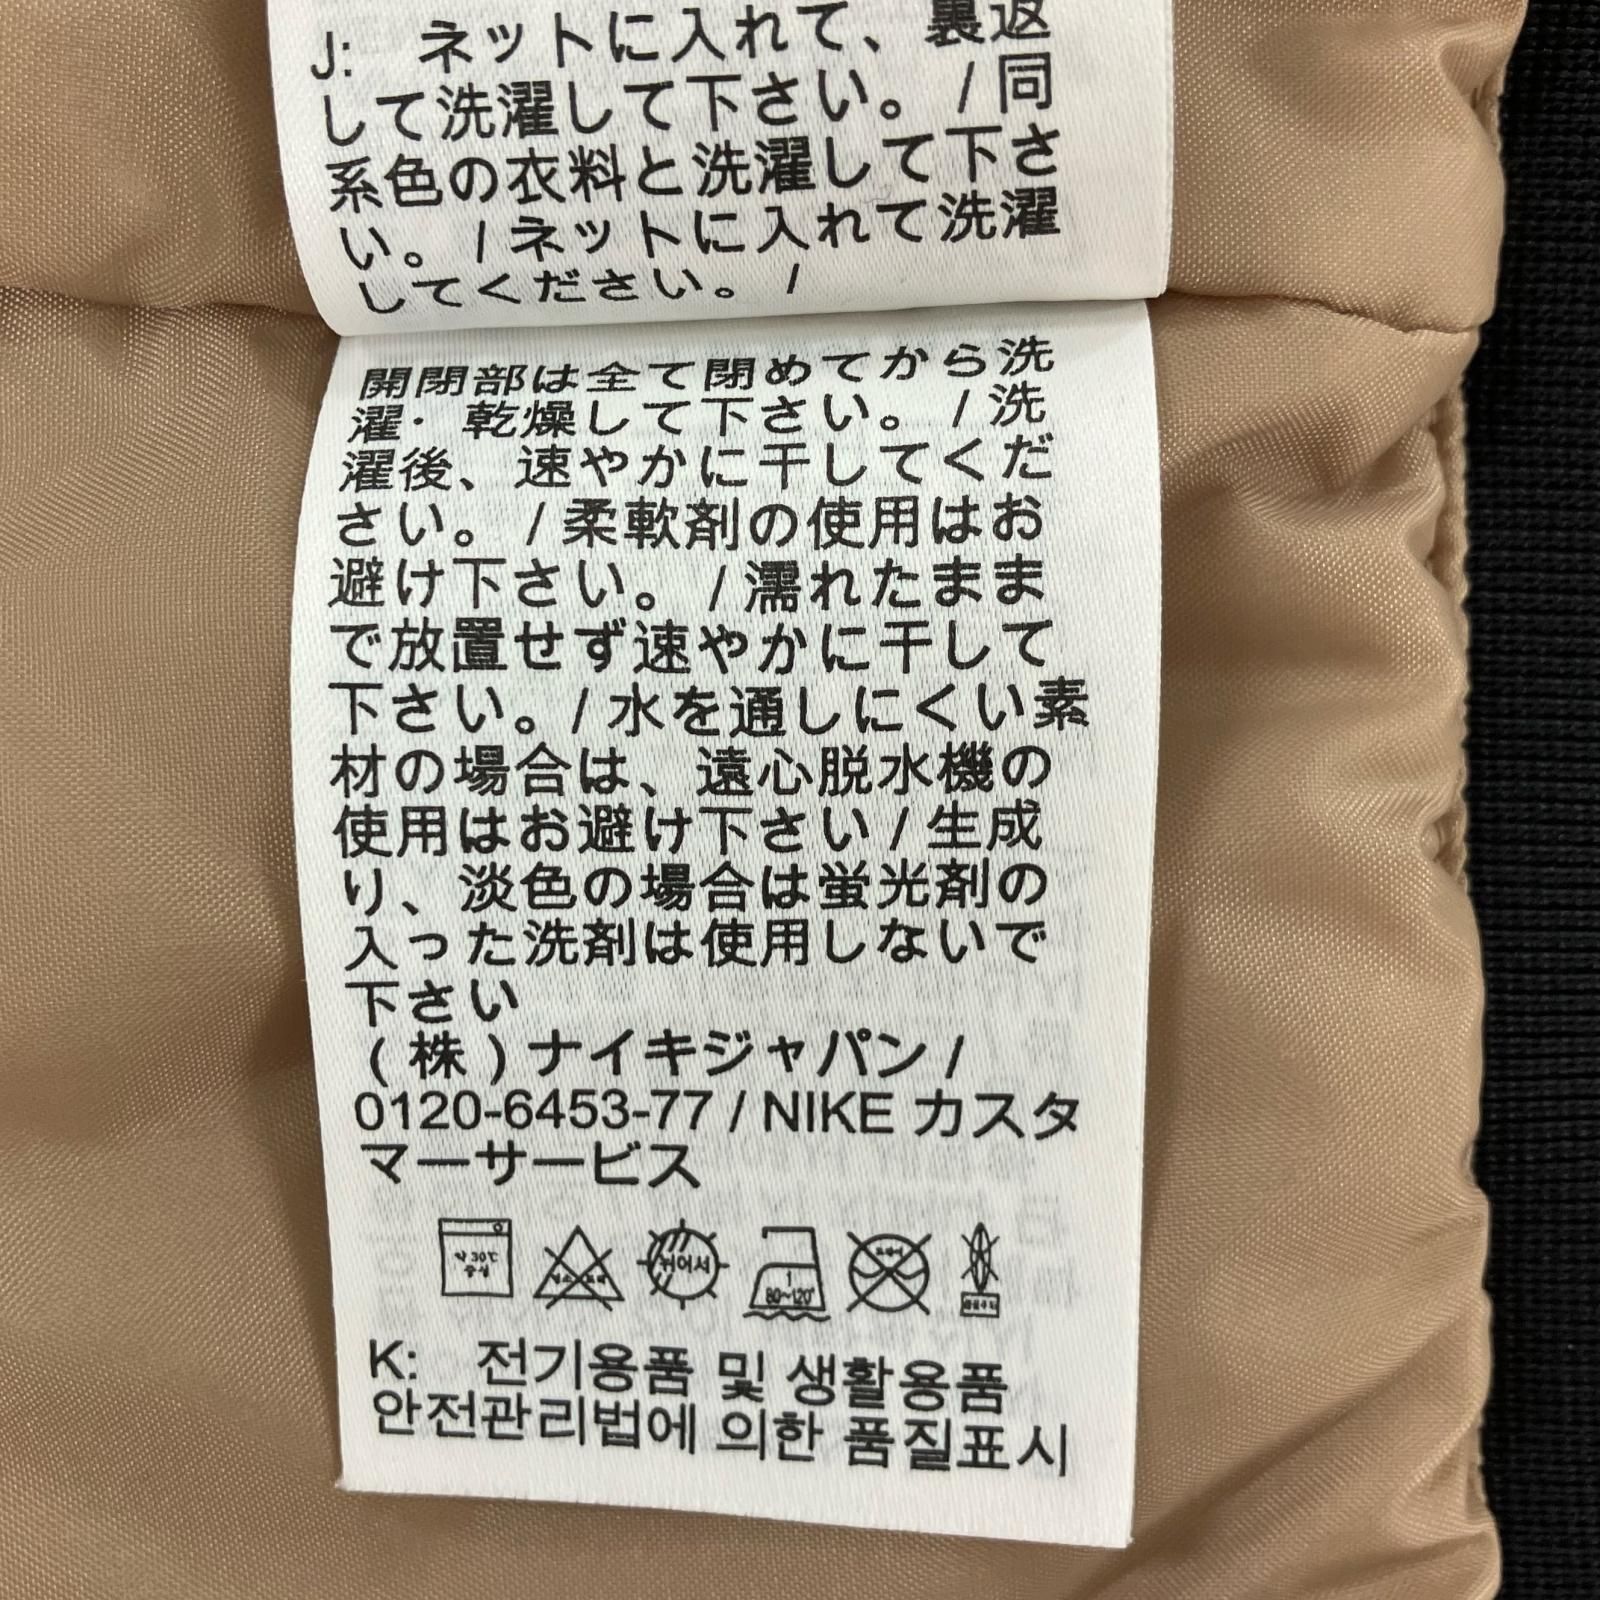 J: ネットに入れて、裏返
して洗濯して下さい。 / 同
系色の衣料と洗濯して下さ
い。 / ネットに入れて洗濯
してください。 /
開閉部は全て閉めてから洗
濯・乾燥して下さい。 / 洗
濯後、速やかに干してくだ
さい。 / 柔軟剤の使用はお
避け下さい。 / 濡れたまま
で放置せず速やかに干して
下さい。 / 水を通しにくい素
材の場合は、遠心脱水機の
使用はお避け下さい / 生成
り、淡色の場合は蛍光剤の
入った洗剤は使用しないで
下さい
(株)ナイキジャパン /
0120-6453-77 / NIKE カスタ
マーサービス
약 30℃
중성
뉘어서
1
80~120°
K: 전기용품 및 생활용품
안전관리법에 의한 품질표시